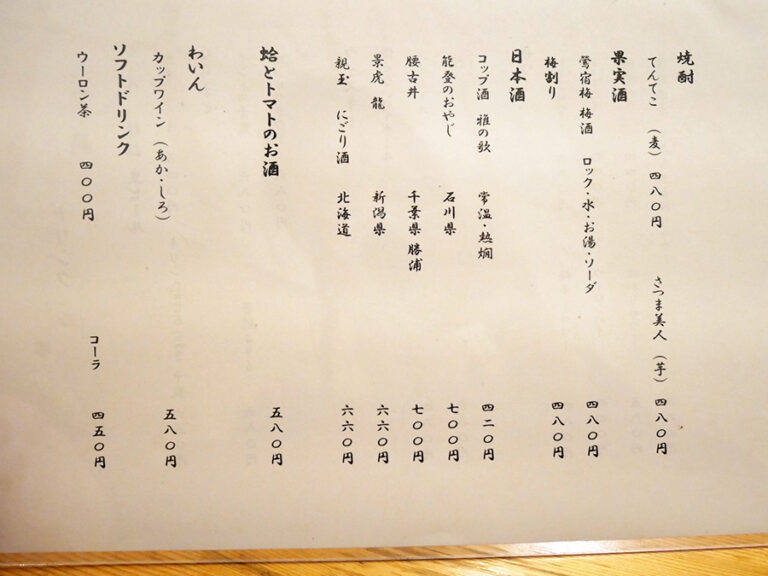 焼酎
てんてこ （麦） 四八〇円 さつま美人 （芋） 四八〇円
果実酒
鶯宿梅 梅酒 ロック・水・お湯・ソーダ 四八〇円
梅割り 四八〇円
日本酒
コップ酒 雅の歌 常温・熱燗 四二〇円
能登のおやじ 石川県 七〇〇円
腰古井 千葉県 勝浦 七〇〇円
景虎 龍 新潟県 六六〇円
親玉 にごり酒 北海道 六六〇円
蛤とトマトのお酒 五八〇円
わいん
カップワイン （あか・しろ） 五八〇円
ソフトドリンク
ウーロン茶 四〇〇円 コーラ 四五〇円